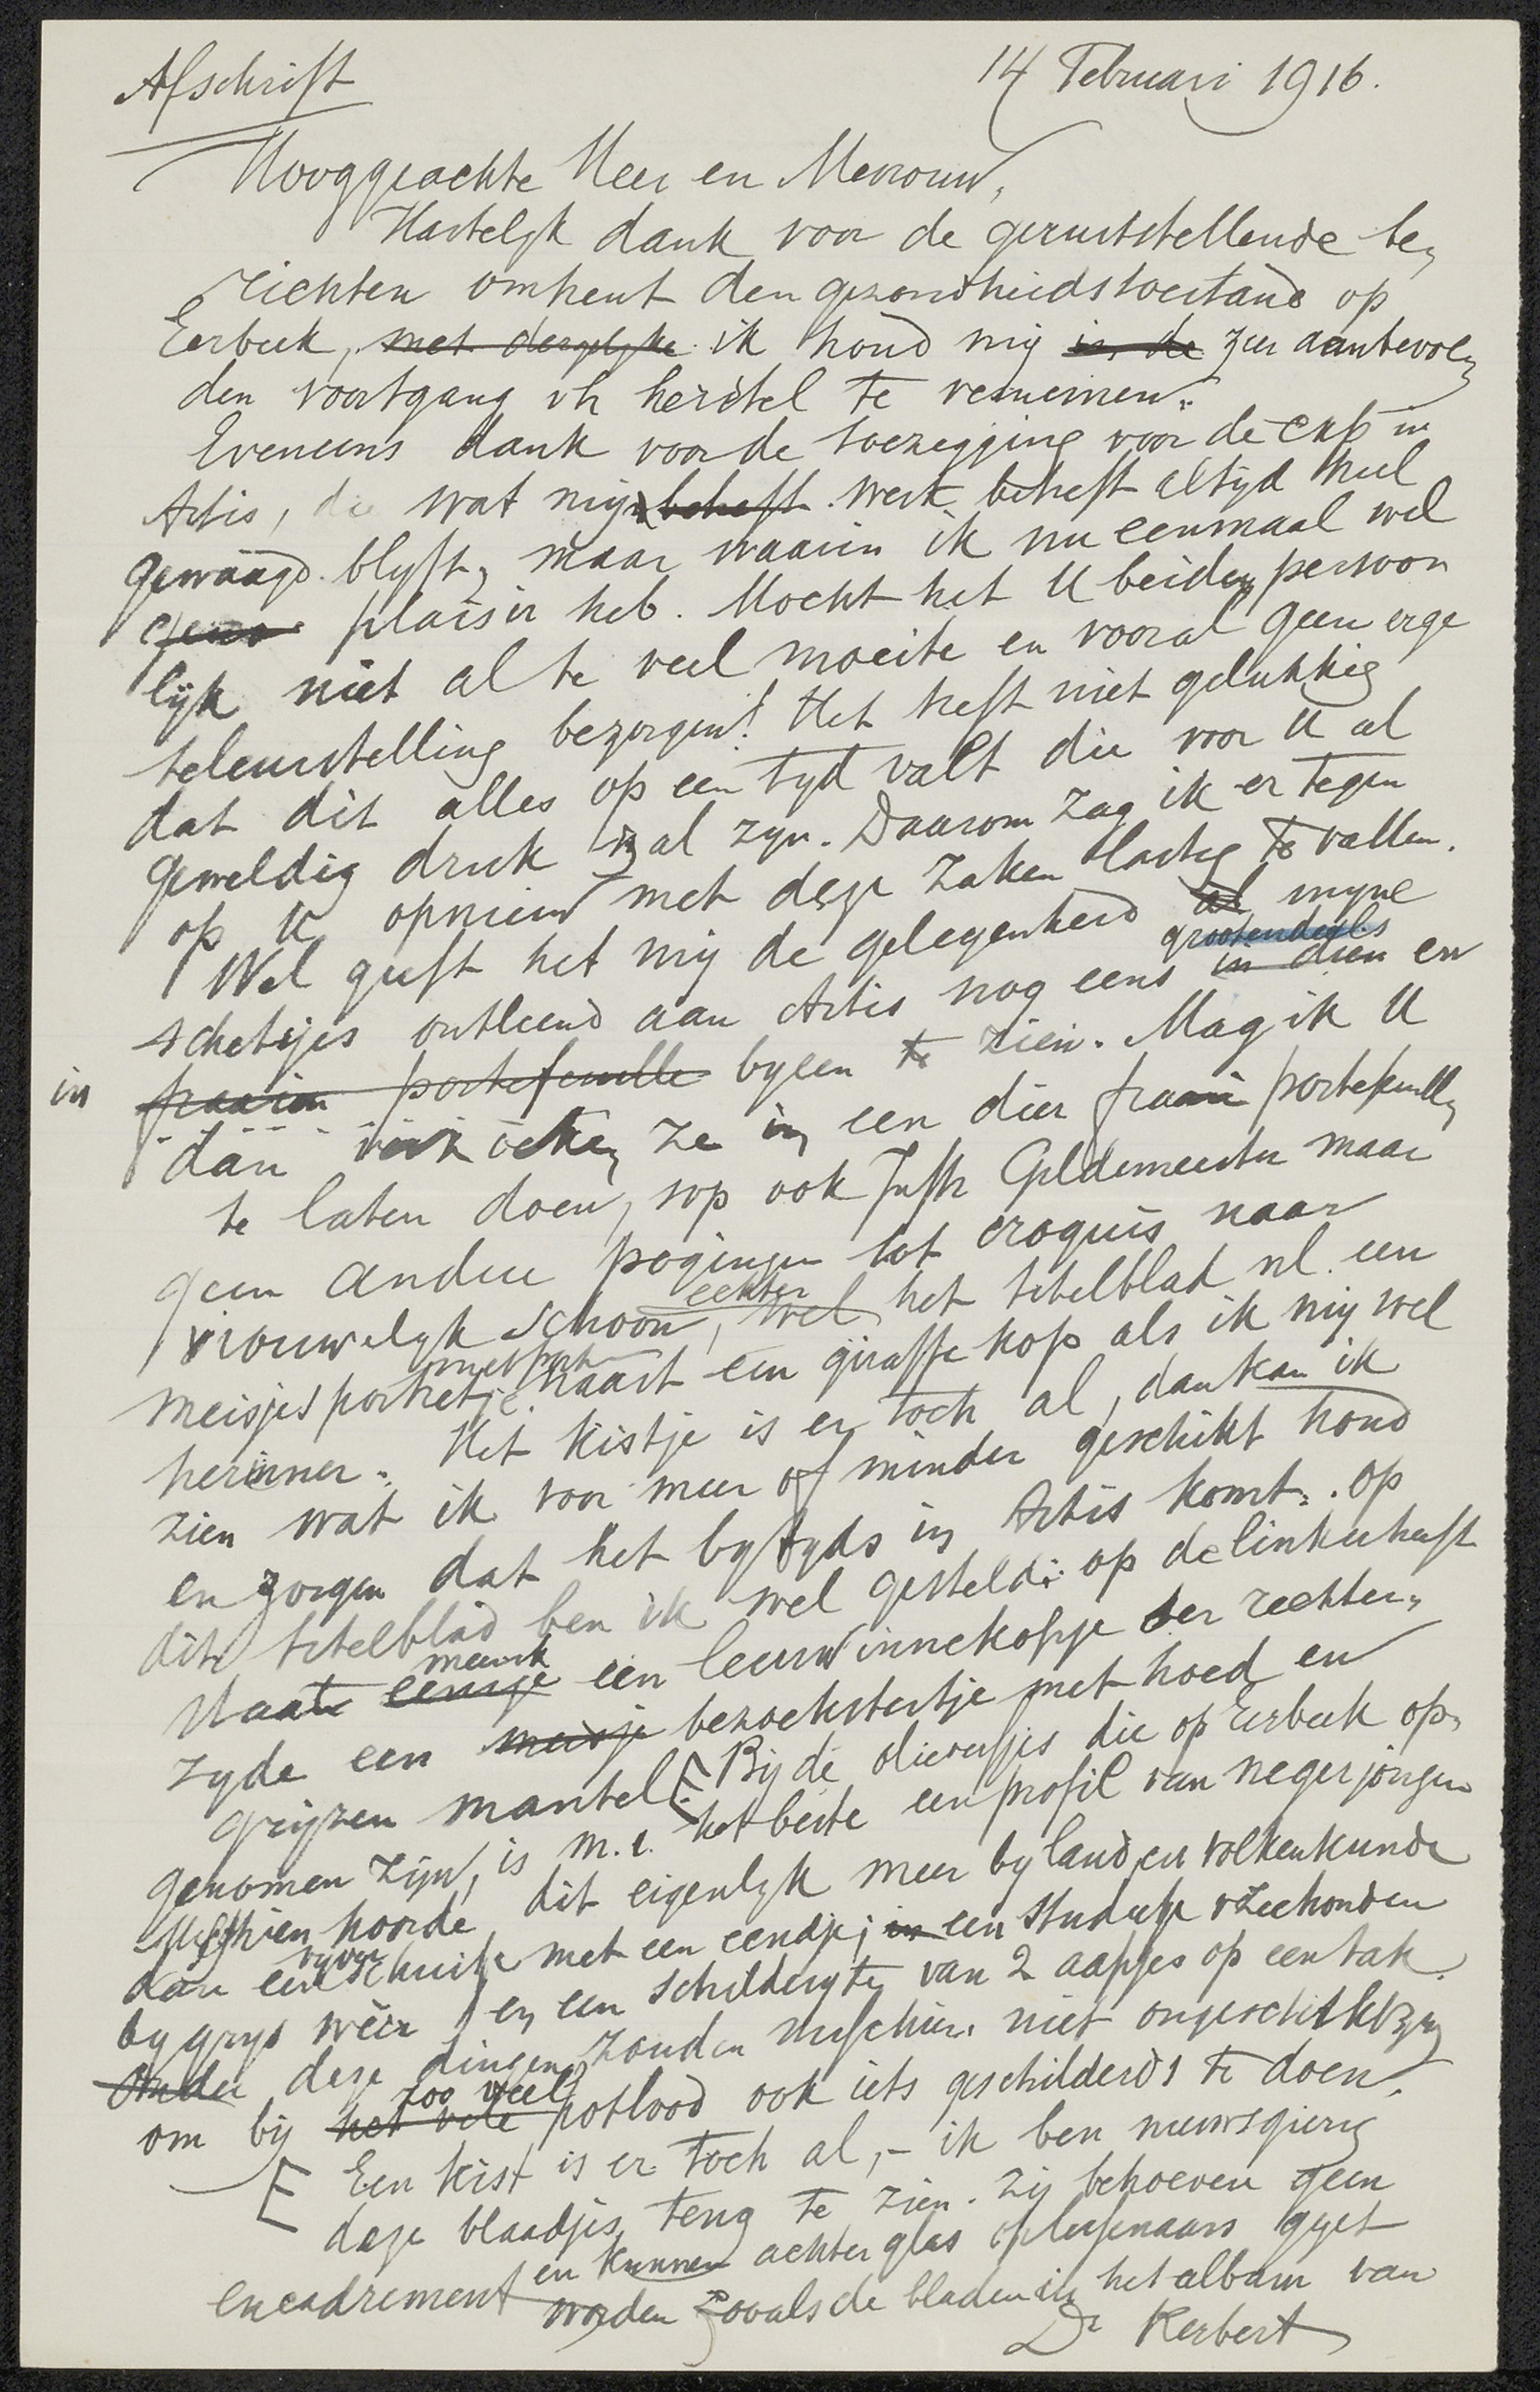 Afschrift
14 Februari 1916.
Hooggeachte Heer en Mevrouw,
Hartelyk dank voor de geruststellende be-
richten omtrent den gezondheidstoestand op
Eerbeek, met dergelyke ik houd mij in de zeer aanbevolen
den voortgang vh herstel te vernemen.
Eveneens dank voor de toezegging voor de exp in
Artis, die wat mijn betreft werk betreft altijd heel
gewaagd blyft, maar waarin ik nu eenmaal wel
plaisir heb. Mocht het U beiden persoon
lijk niet al te veel moeite en vooral geen erge
teleurstelling bezorgen! Het treft niet gelukkig
dat dit alles op een tyd valt die voor U al
geweldig druk zal zyn. Daarom zag ik er tegen
op U opnieuw met deze zaken lastig te vallen.
Wel geeft het mij de gelegenheid al myne
grootendeels
schetsjes ontleend aan Artis nog eens in dien en
in fraaien portefeuille byeen te zien. Mag ik U
dan verzoeken ze in een dier fraaie portefeuilles
te laten doen, svp ook Juffr Geldemeester maar
geen andere pogingen tot croquis naar
echter
vrouwelyk schoon, wel het titelblad nl. een
meisjesportretje naast een giraffe kop als ik mij wel
herinner. Het kistje is er toch al, dan kan ik
zien wat ik voor meer of minder geschikt houd
en zorgen dat het bytyds in Artis komt. Op
dit titelblad ben ik wel gesteld: op de linkerhelft
staat eensje een leeuwinnekopje ter rechter-
zyde een meisje bezoekstertje met hoed en
gryzen mantel [Bij de olieverfjes die op Eerbeek op-
genomen zijn, is m.i. het beste een profil van negerjongen
Misschien hoorde dit eigenlyk meer by land en volkenkunde
vyver
dan een schuitje met een eendje; in een studietje v zeehonden
by grys weer en een schilderytje van 2 aapjes op een tak.
Onder deze dingen zouden misschien niet ongeschikt zyn
zoo veel
om bij het vele potlood ook iets geschilderds te doen.
[ Een kist is er toch al, – ik ben nieuwsgierig
deze blaadjes terug te zien. Zij behoeven geen
encadrement en kunnen achter glas op lessenaars gezet
worden zooals de bladen in het album van
Dr Kerbert